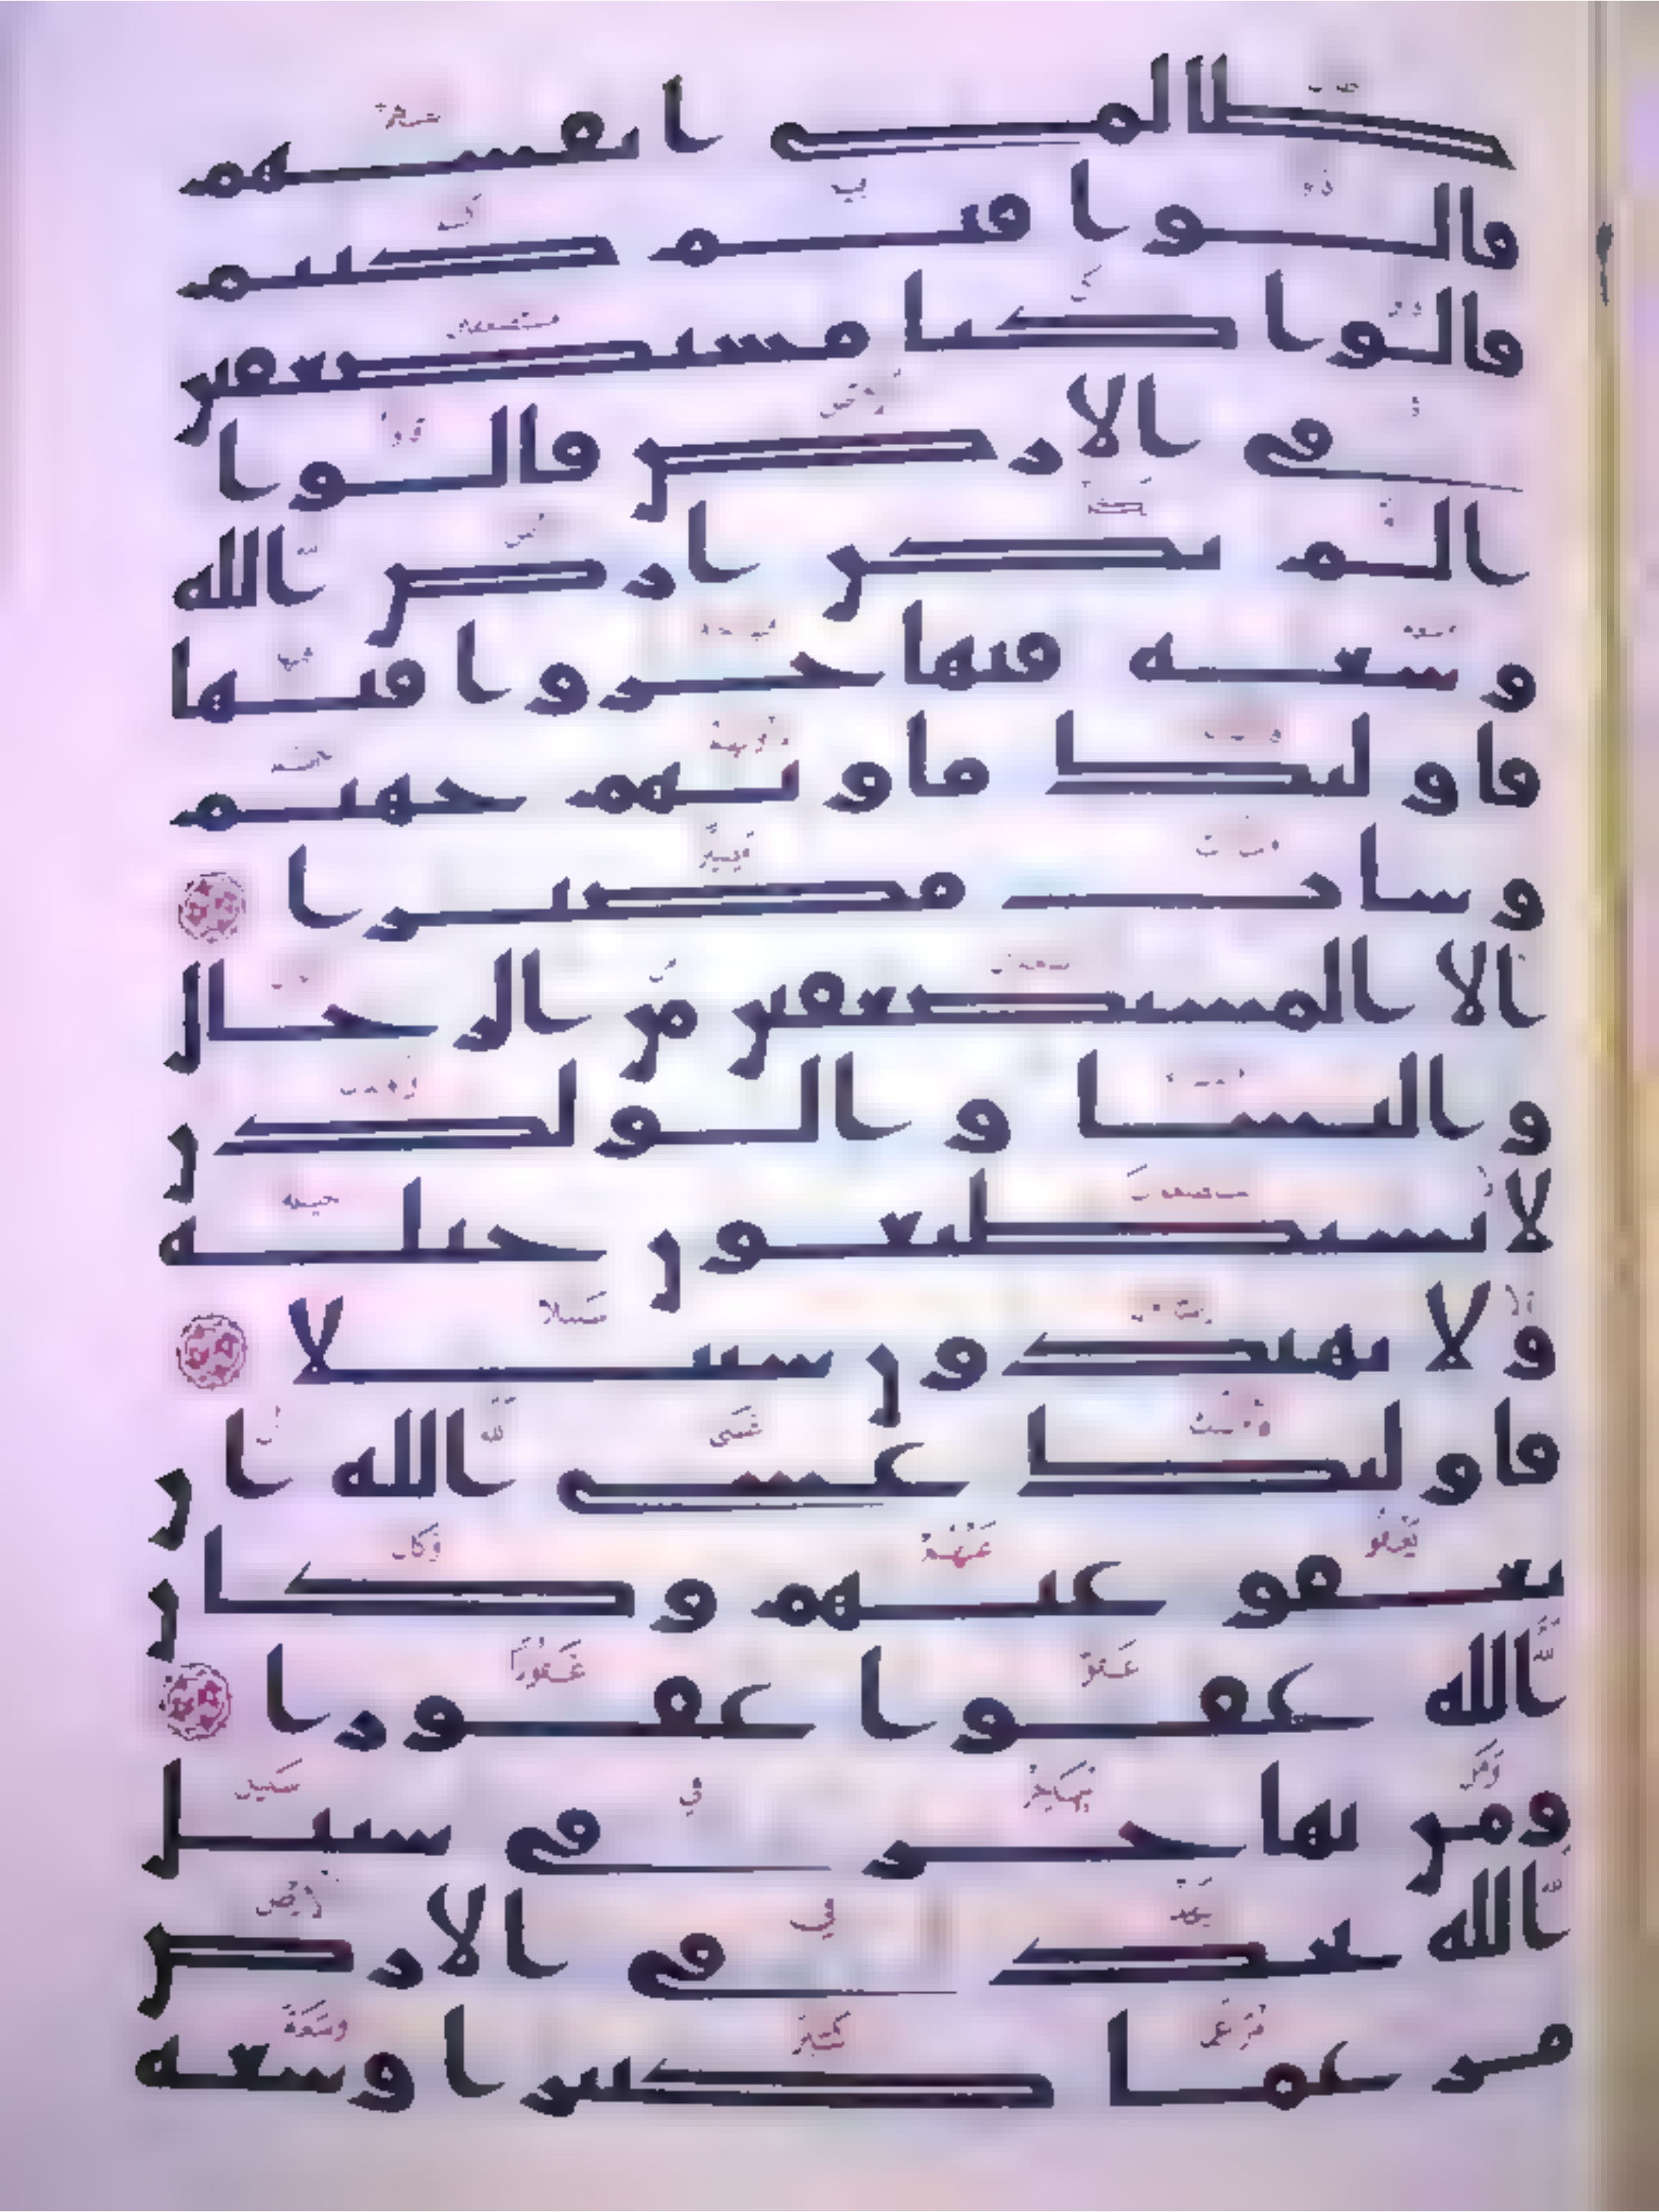 ظالمى انفسهم
قالوا فيم كنتم
قالوا كنا مستضعفين
فى الارض قالوا
الم تكن ارض الله
وسعه فتهاجروا فيها
فاوليك ماويهم جهنم
وسات مصيرا
الا المستضعفين من الرجال
والنسا والولدن
لا يستطيعون حيله
ولا يهتدون سبيلا
فاوليك عسى الله ان
يعفو عنهم وكان
الله عفوا غفورا
ومن يهاجر فى سبيل
الله يجد فى الارض
مرغما كثيرا وسعه